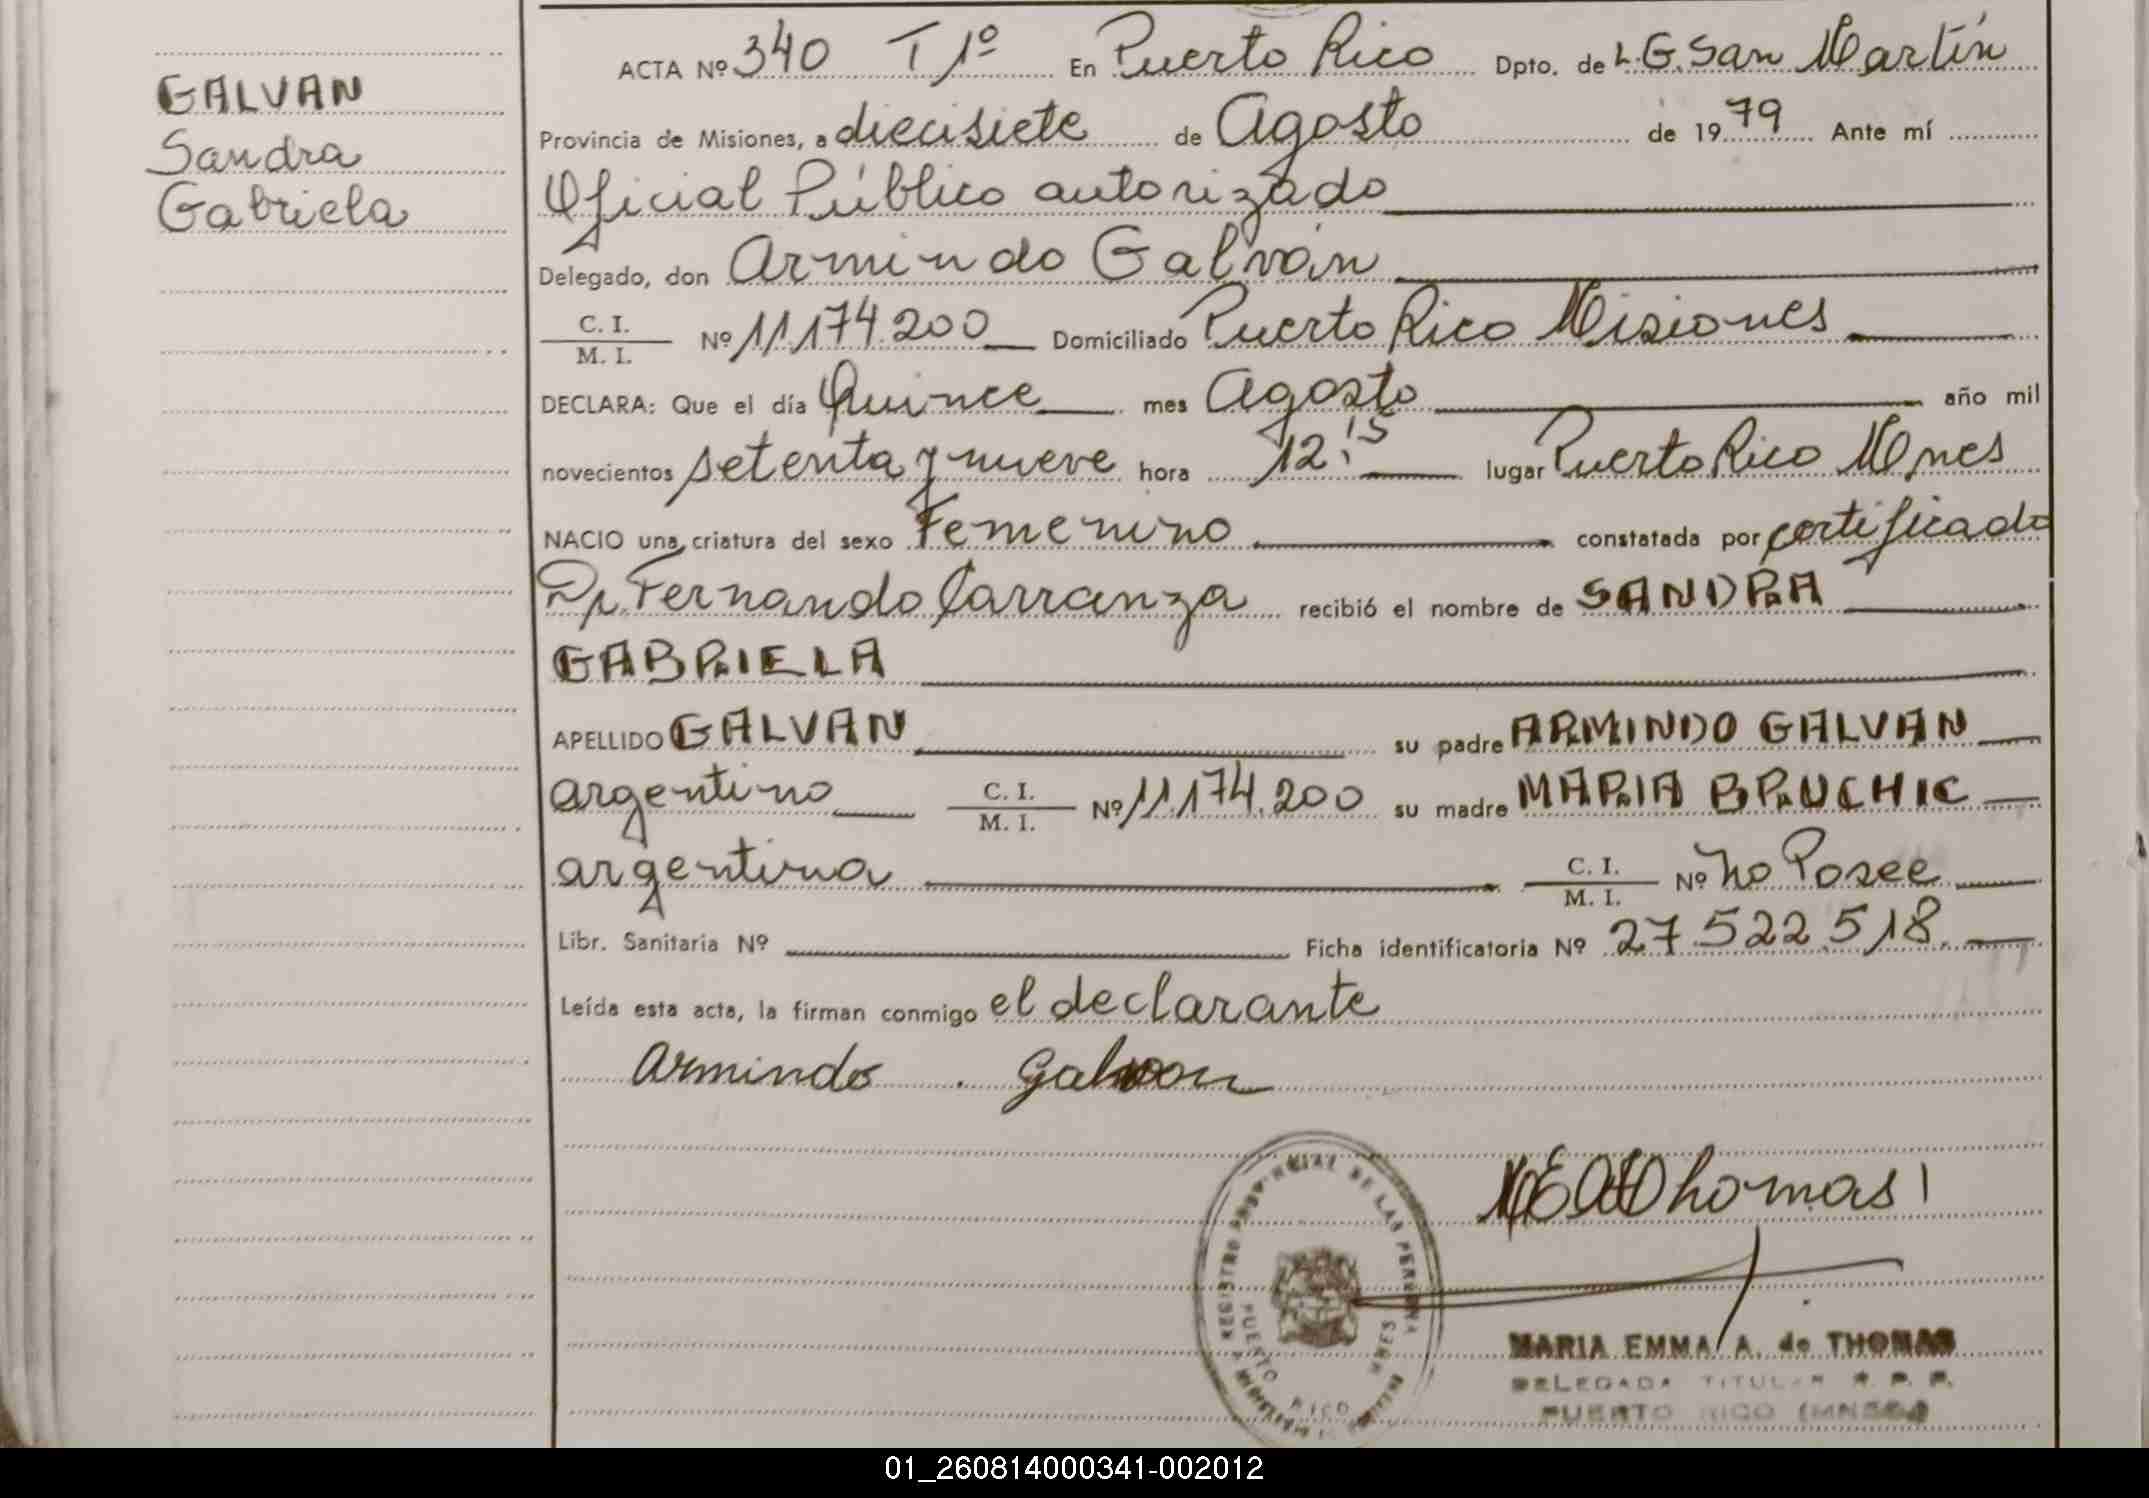 GALVAN
Sandra
Gabriela
ACTA Nº 340 T 1º En Puerto Rico Dpto. de L.G. San Martín
Provincia de Misiones, a diecisiete de Agosto de 1979 Ante mí
Oficial Público autorizado
Delegado, don Armindo Galván
C. I.
M. I. Nº 11.174.200 Domiciliado Puerto Rico Misiones
DECLARA: Que el día Quince mes Agosto año mil
novecientos setenta y nueve hora 12:15 lugar Puerto Rico Mnes
NACIO una criatura del sexo Femenino constatada por certificado
Dr. Fernando Carranza recibió el nombre de SANDRA
GABRIELA
APELLIDO GALVAN su padre ARMINDO GALVAN
argentino C. I.
M. I. Nº 11.174.200 su madre MARIA BRUCHIC
argentina C. I.
M. I. Nº No Posee
Libr. Sanitaria Nº Ficha identificatoria Nº 27.522.518
Leída esta acta, la firman conmigo el declarante
Armindo Galvan
Thomas
REGISTRO PROVINCIAL DE LAS PERSONAS
PUERTO RICO MNES
MARIA EMMA A. de THOMAS
DELEGADA TITULAR R. P. P.
PUERTO RICO (MNES.)
01_260814000341-002012